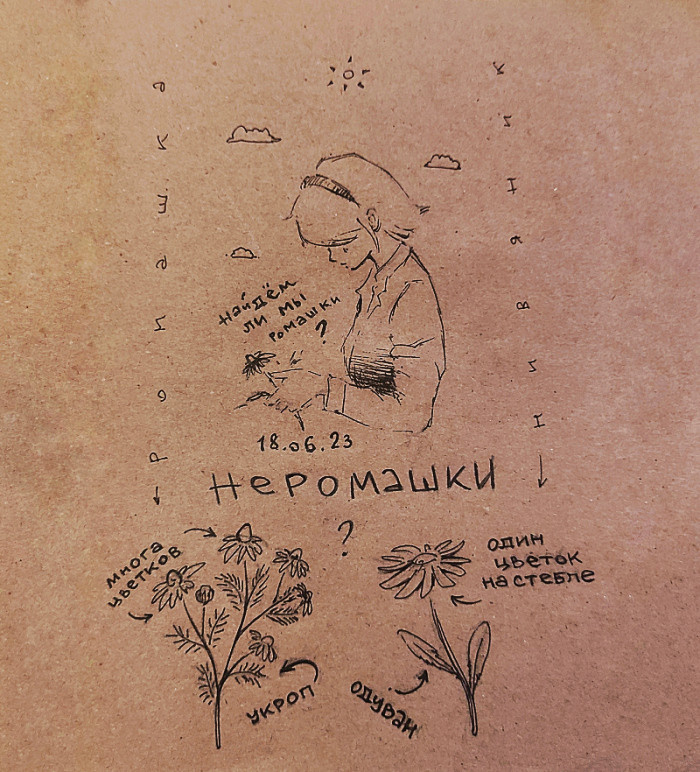 ромашка
нивяник
найдём
ли мы
ромашки
?
18.06.23
Неромашки
?
многа
цветков
укроп
один
цветок
на стебле
одуван